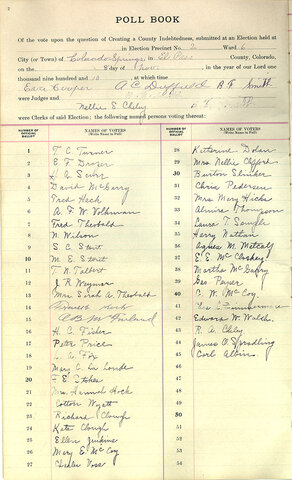 2
POLL BOOK
Of the vote upon the question of Creating a County Indebtedness, submitted at an Election held at
in Election Precinct No. 2 Ward 6
City (or Town) of Colorado Springs in El Paso County, Colorado,
on the 8 day of Nov. in the year of our Lord one
thousand nine hundred and 10, at which time
Cara Cooper A C Duffield B F Smith
were Judges and
Nellie E. Cheley
were Clerks of said Election; the following named persons voting thereat:
NUMBER OF OFFICIAL BALLOT
NAMES OF VOTERS
(Write Name in Full)
1 T C Turner
2 E. F. Draper
3 J. A. Scurr
4 David McGarry
5 Fred Heck
6 A. F. W. Volkman
7 Fred Theobald
8 N. Wilson
9 S. C. Stout
10 M. E. Stout
11 T. N. Talbert
12 J R Waymer
13 Mrs Sarah A. Theobald
14
15
16 H. C. Fisher
17 Peter Price
18 L. A. Fox
19 Mary C. La Londe
20 F E Stokes
21 Mrs Hannah Hock
22 Cotton Wyatt
23 Richard Clough
24 Kate Clough
25 Ellen Jenkins
26 Mary E. McCoy
27 Charles Vose
NUMBER OF OFFICIAL BALLOT
NAMES OF VOTERS
(Write Name in Full)
28 Katherine Dolan
29 Mrs. Nellie Clifford
30 Burton Slinker
31 Chris Pedersen
32 Mrs Mary Hicks
33 Almira Thompson
34 Laura T.
35 Harry Nathan
36 Agnes M. Metcalf
37 E E McCloskey
38 Martha McGarry
39 Geo Payer
40 C. W. McCoy
41
42 Edward W. Walsh
43 R. A. Cheley
44 James A. Spradling
45 Carl Albin
46
47
48
49
50